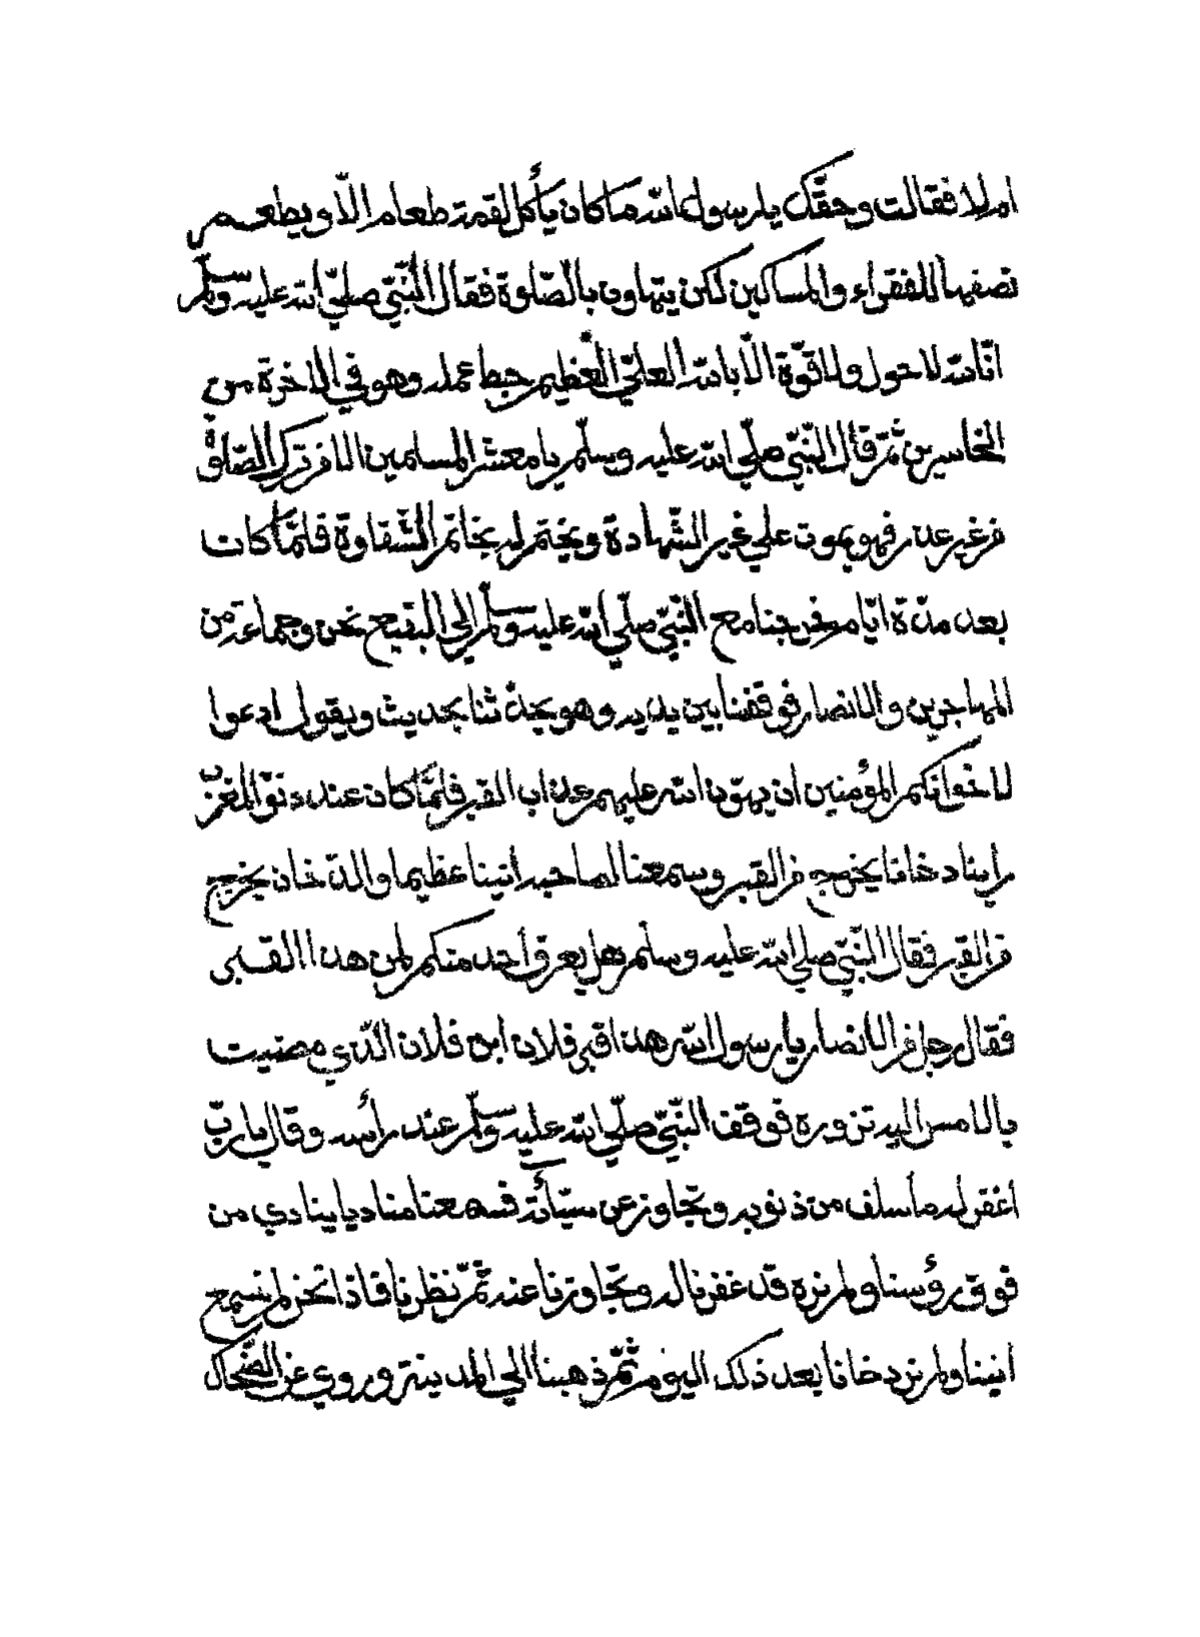 ام لا فقالت وحقّك يا رسول الله ما كان يأكل لقمة طعام الّا ويطعم
نصفها للفقراء والمساكين لكن يتهاون بالصّلوة فقال النّبيّ صليّ الله عليه وسلّم
انّا لله لا حول ولا قوّة الّا بالله العليّ العظيم حبط عمله وهو في الاخرة من
الخاسرين ثمّ قال النّبيّ صلّي الله عليه وسلّم يا معشر المسلمين الا من ترك الصّلوة
من غير عذر فهو يموت علي غير الشّهادة ويختم له بخاتم الشّقاوة فلمّا كان
بعد مدّة ايّام خرجنا مع النّبيّ صلّي الله عليه وسلّم الي البقيع نحن وجماعة من
المهاجرين والانصار فوقفنا بين يديه وهو يحدّثنا بحديث ويقول ادعوا
لاخوانكم المؤمنين ان يهوّن الله عليهم عذاب القبر فلمّا كان عند دنوّ المغرب
راينا دخانا يخرج من القبر وسمعنا لصاحبه انينا عظيما والدّخان يخرج
من القبر فقال النّبيّ صلي الله عليه وسلم هل يعرف أحد منكم لمن هذا القبر
فقال رجل من الانصار يا رسول الله هذا قبر فلان ابن فلان الّذي مضيت
بالامس اليه تزوره فوقف النّبيّ صلّي الله عليه وسلّم عند رأسه وقال يا ربّ
أغفر له ما أسلف من ذنوبه وتجاوز عن سيّأته فسمعنا مناديا ينادي من
فوق رؤسنا ولم نره قد غفرنا له وتجّاوزنا عنه ثمّ نظرنا فاذا نحن لم نسمع
انينا ولم نر دخانا بعد ذلك اليوم ثمّ ذهبنا الي المدينة وروي عن الضّحاك